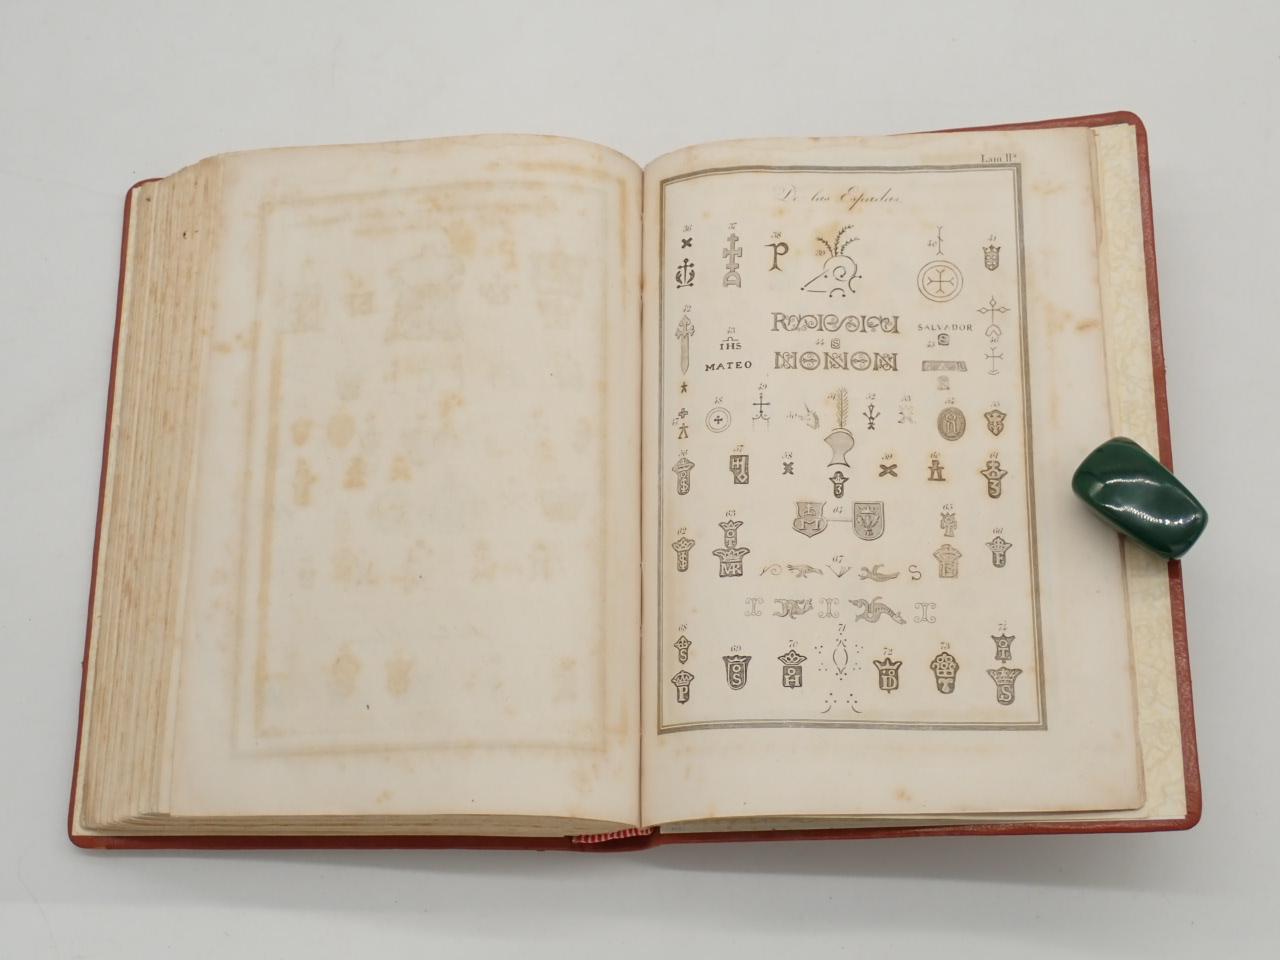 Lam. IIª
De las Espadas.
36 37 38 39 40 41
P
42 43 IHS
SALVADOR
44 S 45 S 46
MATEO
NONON
S
47 48 49 50 51 52 53 54 55
56 57 58 59 60 61
3 3
62 63 64 65 66
T M
S MR F
67
S
I I I
68 69 70 71 72 73 74
S T
P S H D T S